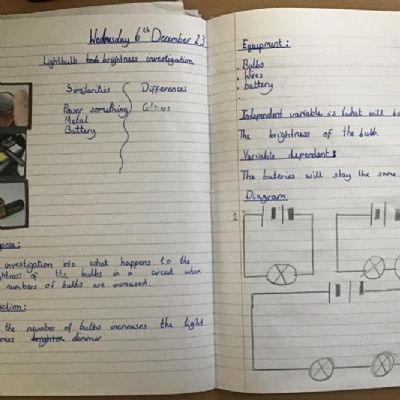 Wednesday 6th December 23
Lightbulb brightness investigation
Similarities
Differences
Power something
Colours
Metal
Battery
pose:
investigation into what happens to the
htness of the bulbs in a circuit when
numbers of bulbs are increased.
iction:
the number of bulbs increases the light
dimmer
Equipment:
. Bulbs
. Wires
. battery
Independent variable is (what will be
The brightness of the bulb.
Variable dependent:
The bateries will stay the same.
Diagram
1